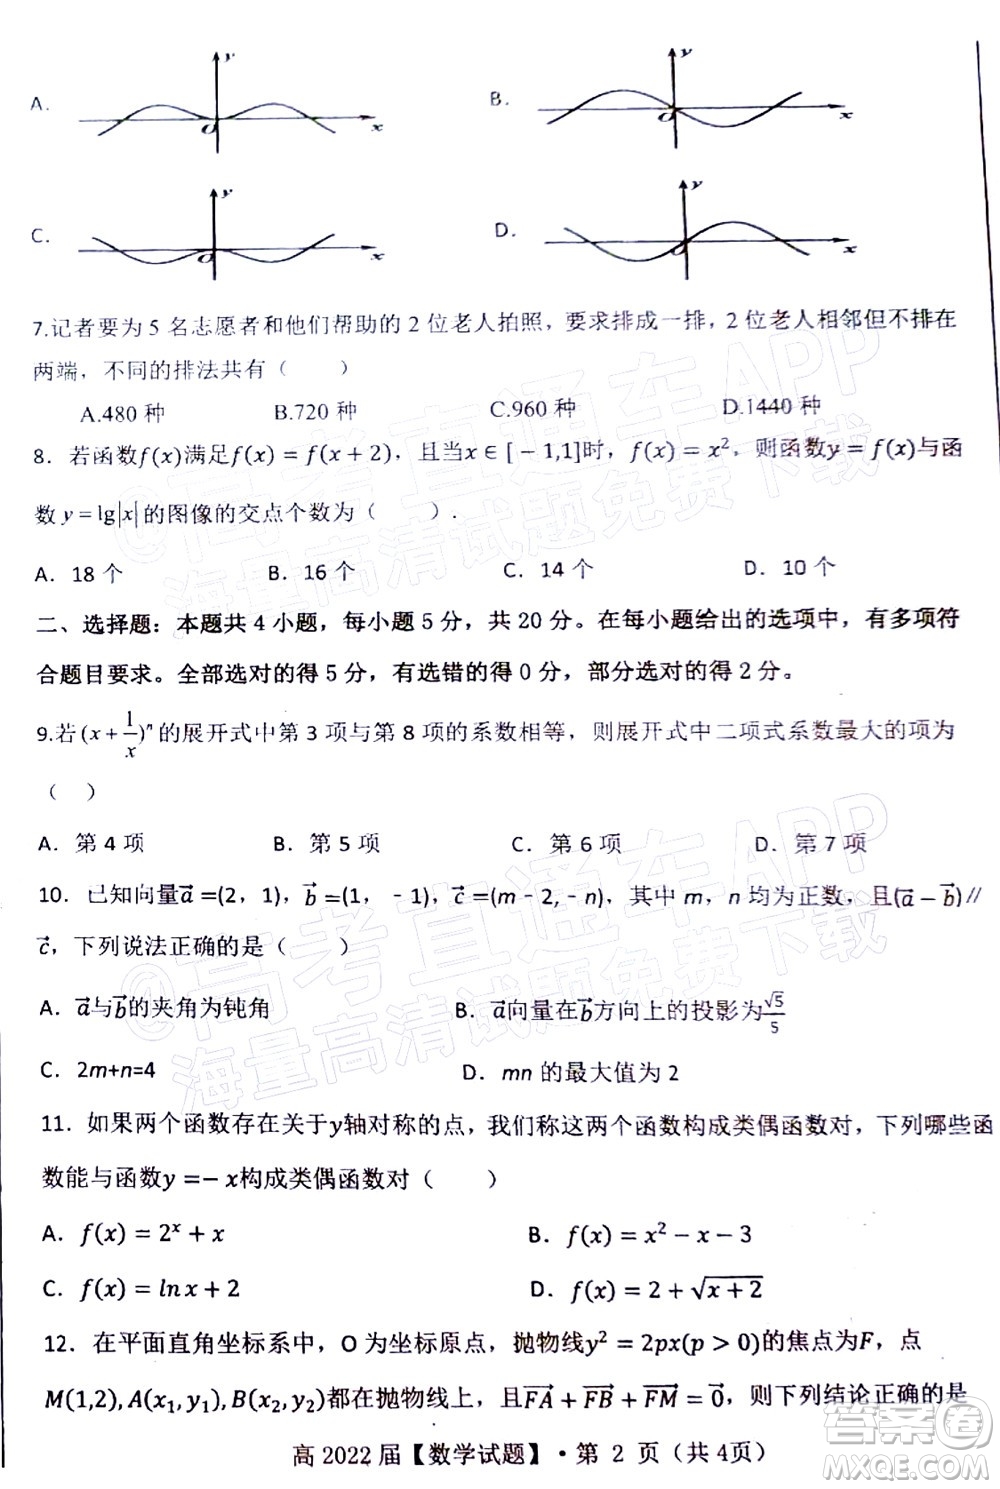 A.
y
O
x
B.
y
O
x
C.
y
O
x
D.
y
O
x
7.记者要为 5 名志愿者和他们帮助的 2 位老人拍照，要求排成一排，2 位老人相邻但不排在
两端，不同的排法共有（　　）
A.480 种 B.720 种 C.960 种 D.1440 种
8．若函数f(x)满足f(x) = f(x + 2)，且当x ∈ [－1,1]时，f(x) = x²，则函数y = f(x)与函
数 y = lg|x| 的图像的交点个数为（　　）.
A．18 个 B．16 个 C．14 个 D．10 个
二、选择题：本题共 4 小题，每小题 5 分，共 20 分。在每小题给出的选项中，有多项符
合题目要求。全部选对的得 5 分，有选错的得 0 分，部分选对的得 2 分。
9.若(x + 1/x)ⁿ 的展开式中第 3 项与第 8 项的系数相等，则展开式中二项式系数最大的项为
（　）
A．第 4 项 B．第 5 项 C．第 6 项 D．第 7 项
10．已知向量a⃗=(2，1)，b⃗ =(1，- 1)，c⃗ =(m - 2,- n)，其中 m，n 均为正数，且(a⃗ － b⃗)∥
c⃗，下列说法正确的是（　　）
A．a⃗与b⃗的夹角为钝角 B．a⃗向量在b⃗方向上的投影为√5/5
C．2m+n=4 D．mn 的最大值为 2
11．如果两个函数存在关于y轴对称的点，我们称这两个函数构成类偶函数对，下列哪些函
数能与函数y = － x构成类偶函数对（　　）
A．f(x) = 2ˣ + x B．f(x) = x² － x － 3
C．f(x) = ln x + 2 D．f(x) = 2 + √(x + 2)
12．在平面直角坐标系中，O 为坐标原点，抛物线y² = 2px(p > 0)的焦点为F，点
M(1,2), A(x₁,y₁), B(x₂,y₂)都在抛物线上，且FA⃗ + FB⃗ + FM⃗ = 0⃗，则下列结论正确的是
高 2022 届【数学试题】· 第 2 页（共 4页）
@高考直通车APP
海量高清试题免费下载
@高考直通车APP
海量高清试题免费下载
答案圈
MXQE.COM